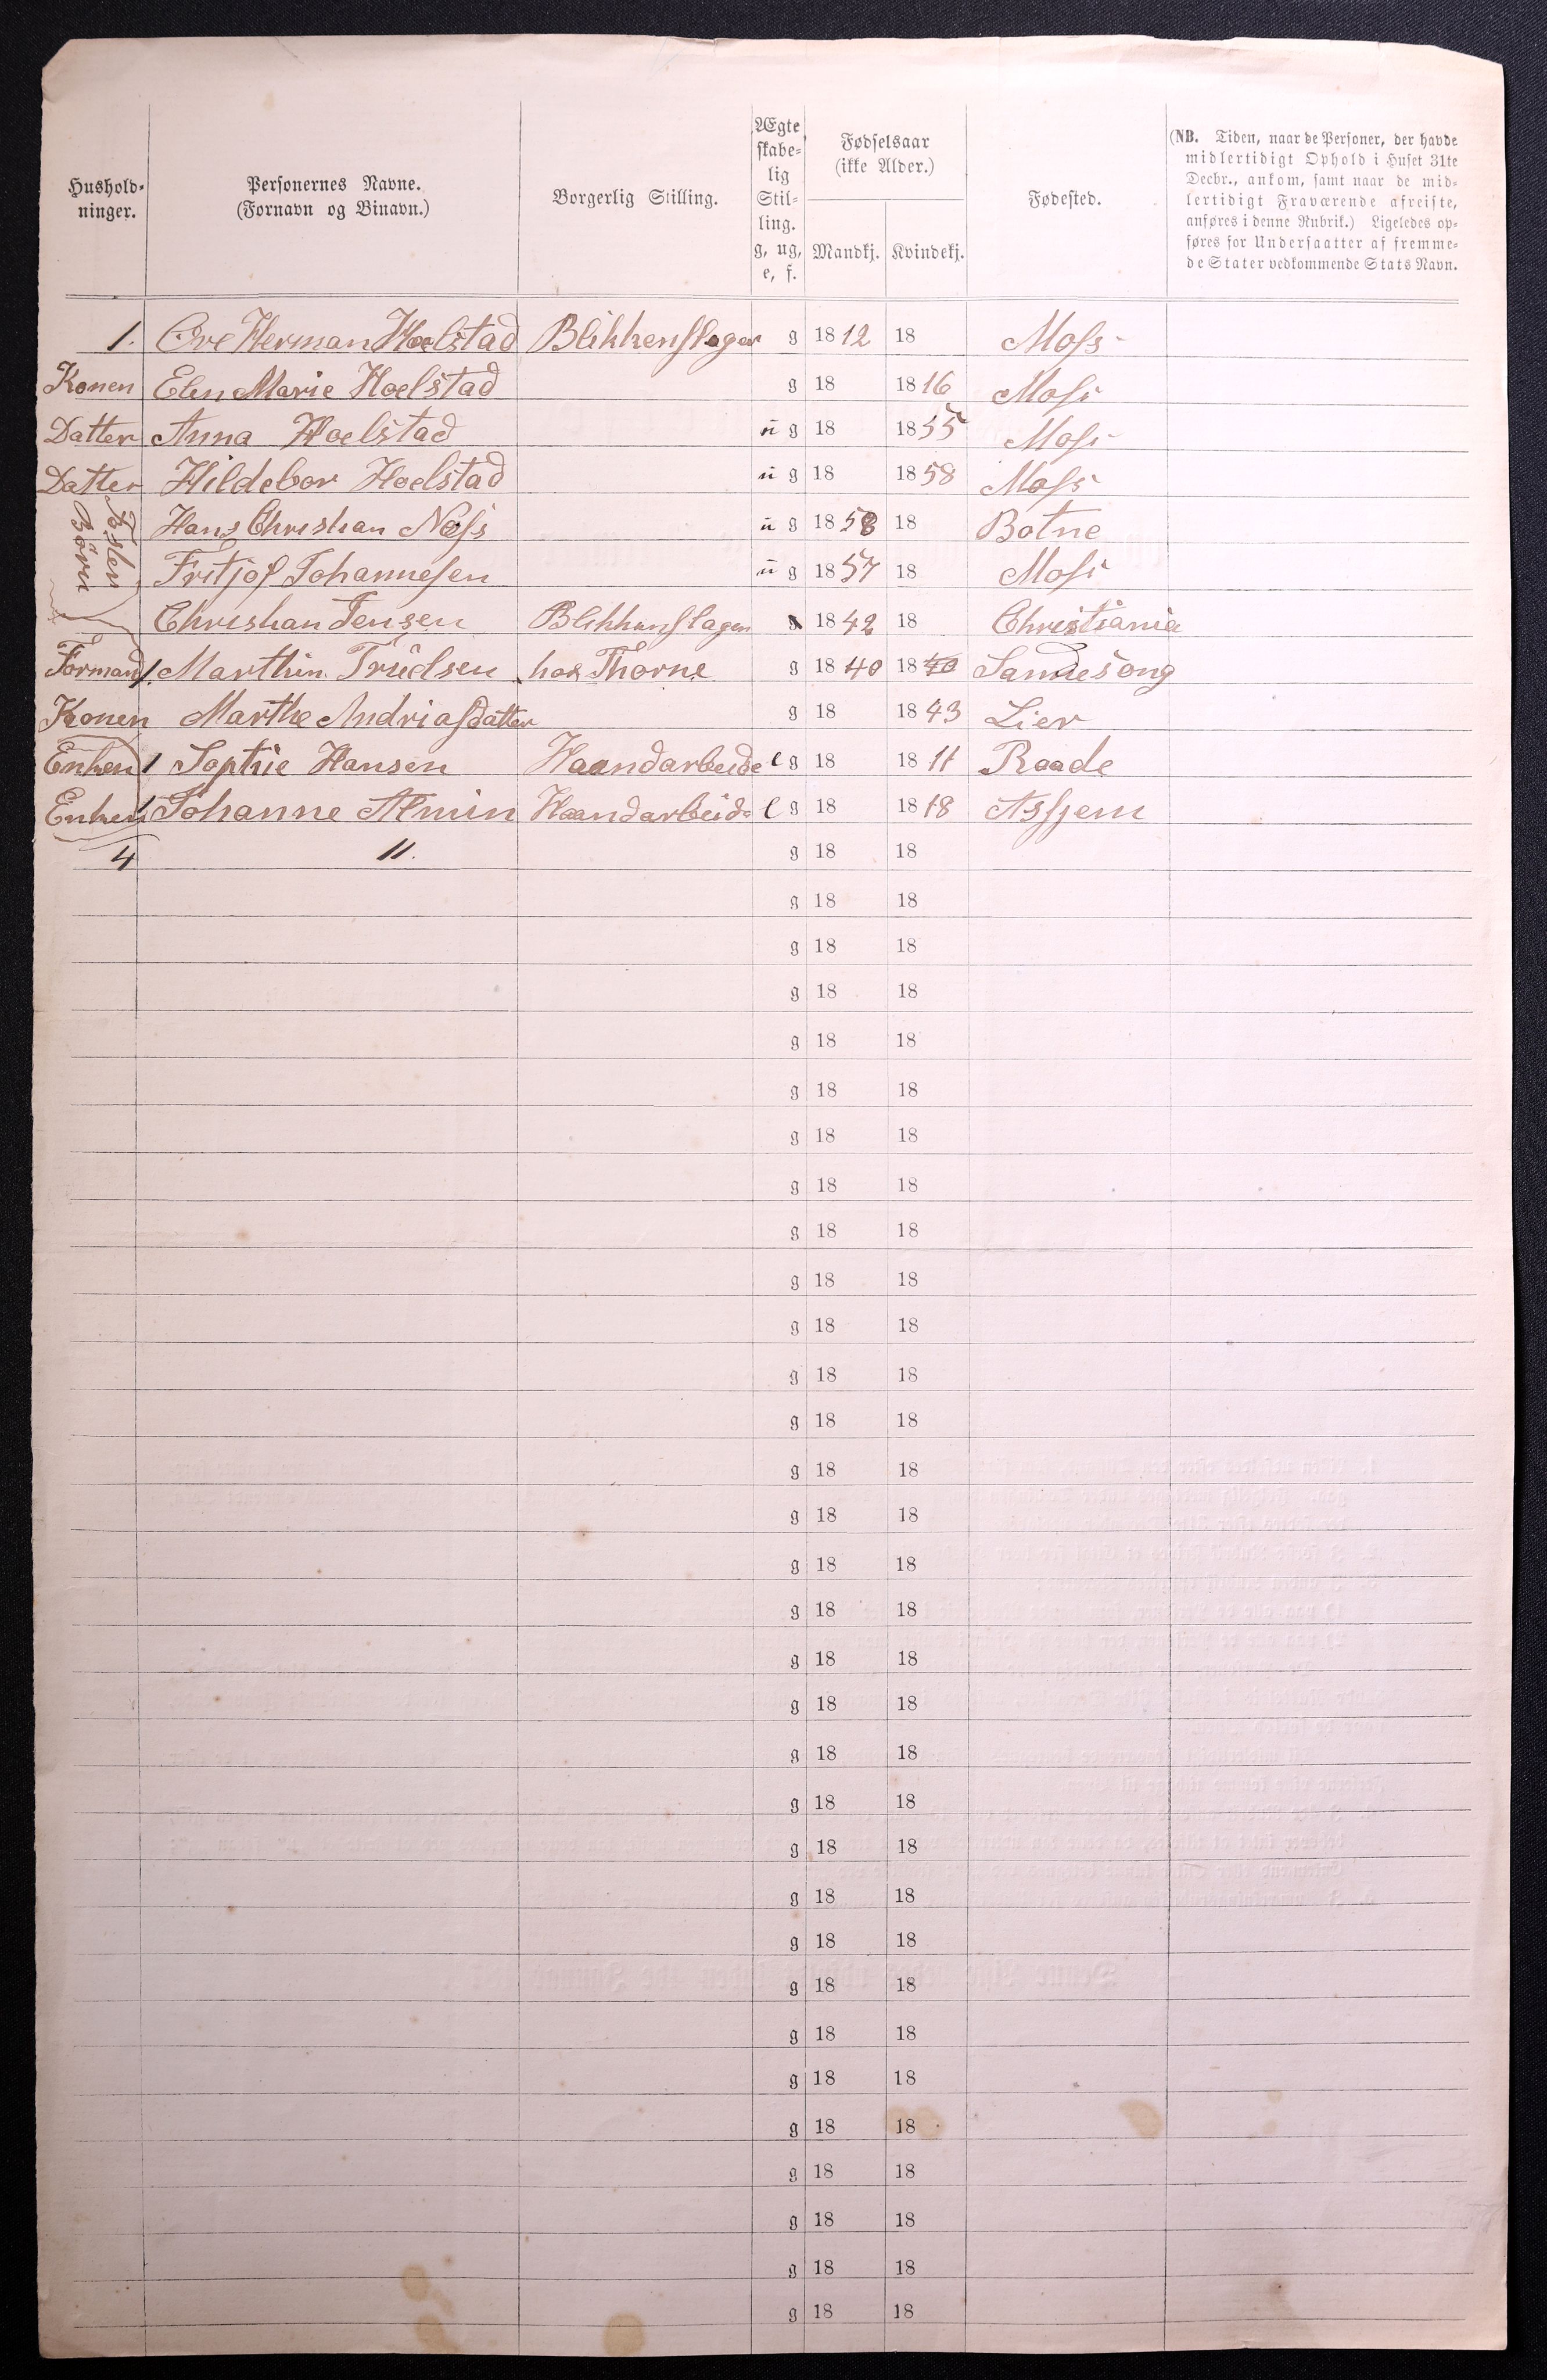 Hushold-
ninger.
Personernes Navne.
(Fornavn og Binavn.)
Borgerlig Stilling.
Ægte
skabe-
lig
Stil-
ling.
g, ug,
e, f.
Fødselsaar
(ikke Alder.)
Mandkj. Kvindekj.
Fødested.
(NB. Tiden, naar de Personer, der havde
midlertidigt Ophold i Huset 31te
Decbr., ankom, samt naar de mid-
lertidigt Fraværende afreiste,
anføres i denne Rubrik.) Ligeledes op-
føres for Undersaatter af fremme-
de Stater vedkommende Stats Navn.
1. Ove Herman Hoelstad Blikkenslager g 1812 18 Moss
Konen Elen Marie Hoelstad g 18 1816 Moss
Datter Anna Hoelstad ug 18 1855 Moss
Datter Hildebor Hoelstad ug 18 1858 Moss
Foster
Børn
Hans Christian Næss ug 1858 18 Botne
Fritjof Johannesen ug 1857 18 Moss
Christian Jensen Blikkenslager 1842 18 Christiania
Formand 1. Marthin Truelsen hos Thorne g 1840 1840 
Konen Marthe Andriasdatter g 18 1843 Lier
Enken 1 Sophie Hansen Haandarbeide e g 18 1811 Raade
Enken 1 Johanne Almin Haandarbeide e g 18 1818 Assjem
4 11. g 18 18
g 18 18
g 18 18
g 18 18
g 18 18
g 18 18
g 18 18
g 18 18
g 18 18
g 18 18
g 18 18
g 18 18
g 18 18
g 18 18
g 18 18
g 18 18
g 18 18
g 18 18
g 18 18
g 18 18
g 18 18
g 18 18
g 18 18
g 18 18
g 18 18
g 18 18
g 18 18
g 18 18
g 18 18
g 18 18
g 18 18
g 18 18